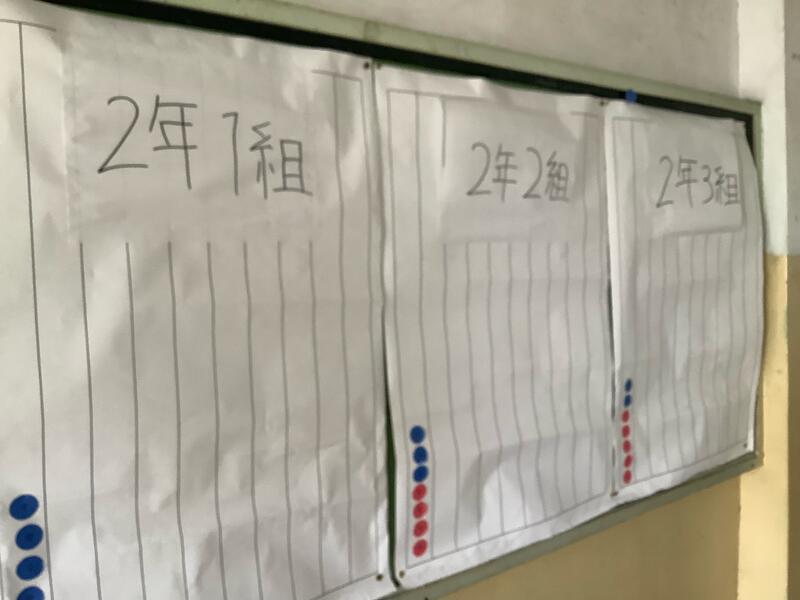 2年1組
2年2組
2年3組